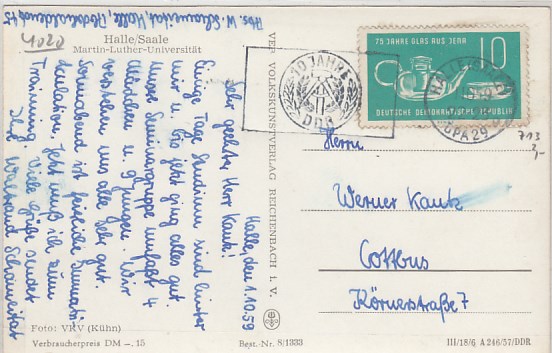 Abs. W. Schameitat, Halle,
4020
Halle/Saale
Martin-Luther-Universität
Halle, den 1.10.59
Sehr geehrter Herr Kautz!
Einige Tage Studium sind hinter
mir u. bis jetzt ging alles gut.
Unsere Seminargruppe umfaßt 4
Mädchen u. 9 Jungen. Wir
verstehen uns alle sehr gut.
Sonnabend ist feierliche Immatri-
kulation. Jetzt muß ich zum
Training. Viele Grüße sendet
Ihre Waltraud Schameitat
Foto: VKV (Kühn)
Verbraucherpreis DM –.15
Best.-Nr. 8/1333
VEB VOLKSKUNSTVERLAG REICHENBACH I. V.
10 JAHRE
DDR
75 JAHRE GLAS AUS JENA
10
DEUTSCHE DEMOKRATISCHE REPUBLIK
HALLE
713
2,-
Herrn
Werner Kautz
Cottbus
Körnerstraße 7
III/18/6 A 246/57/DDR